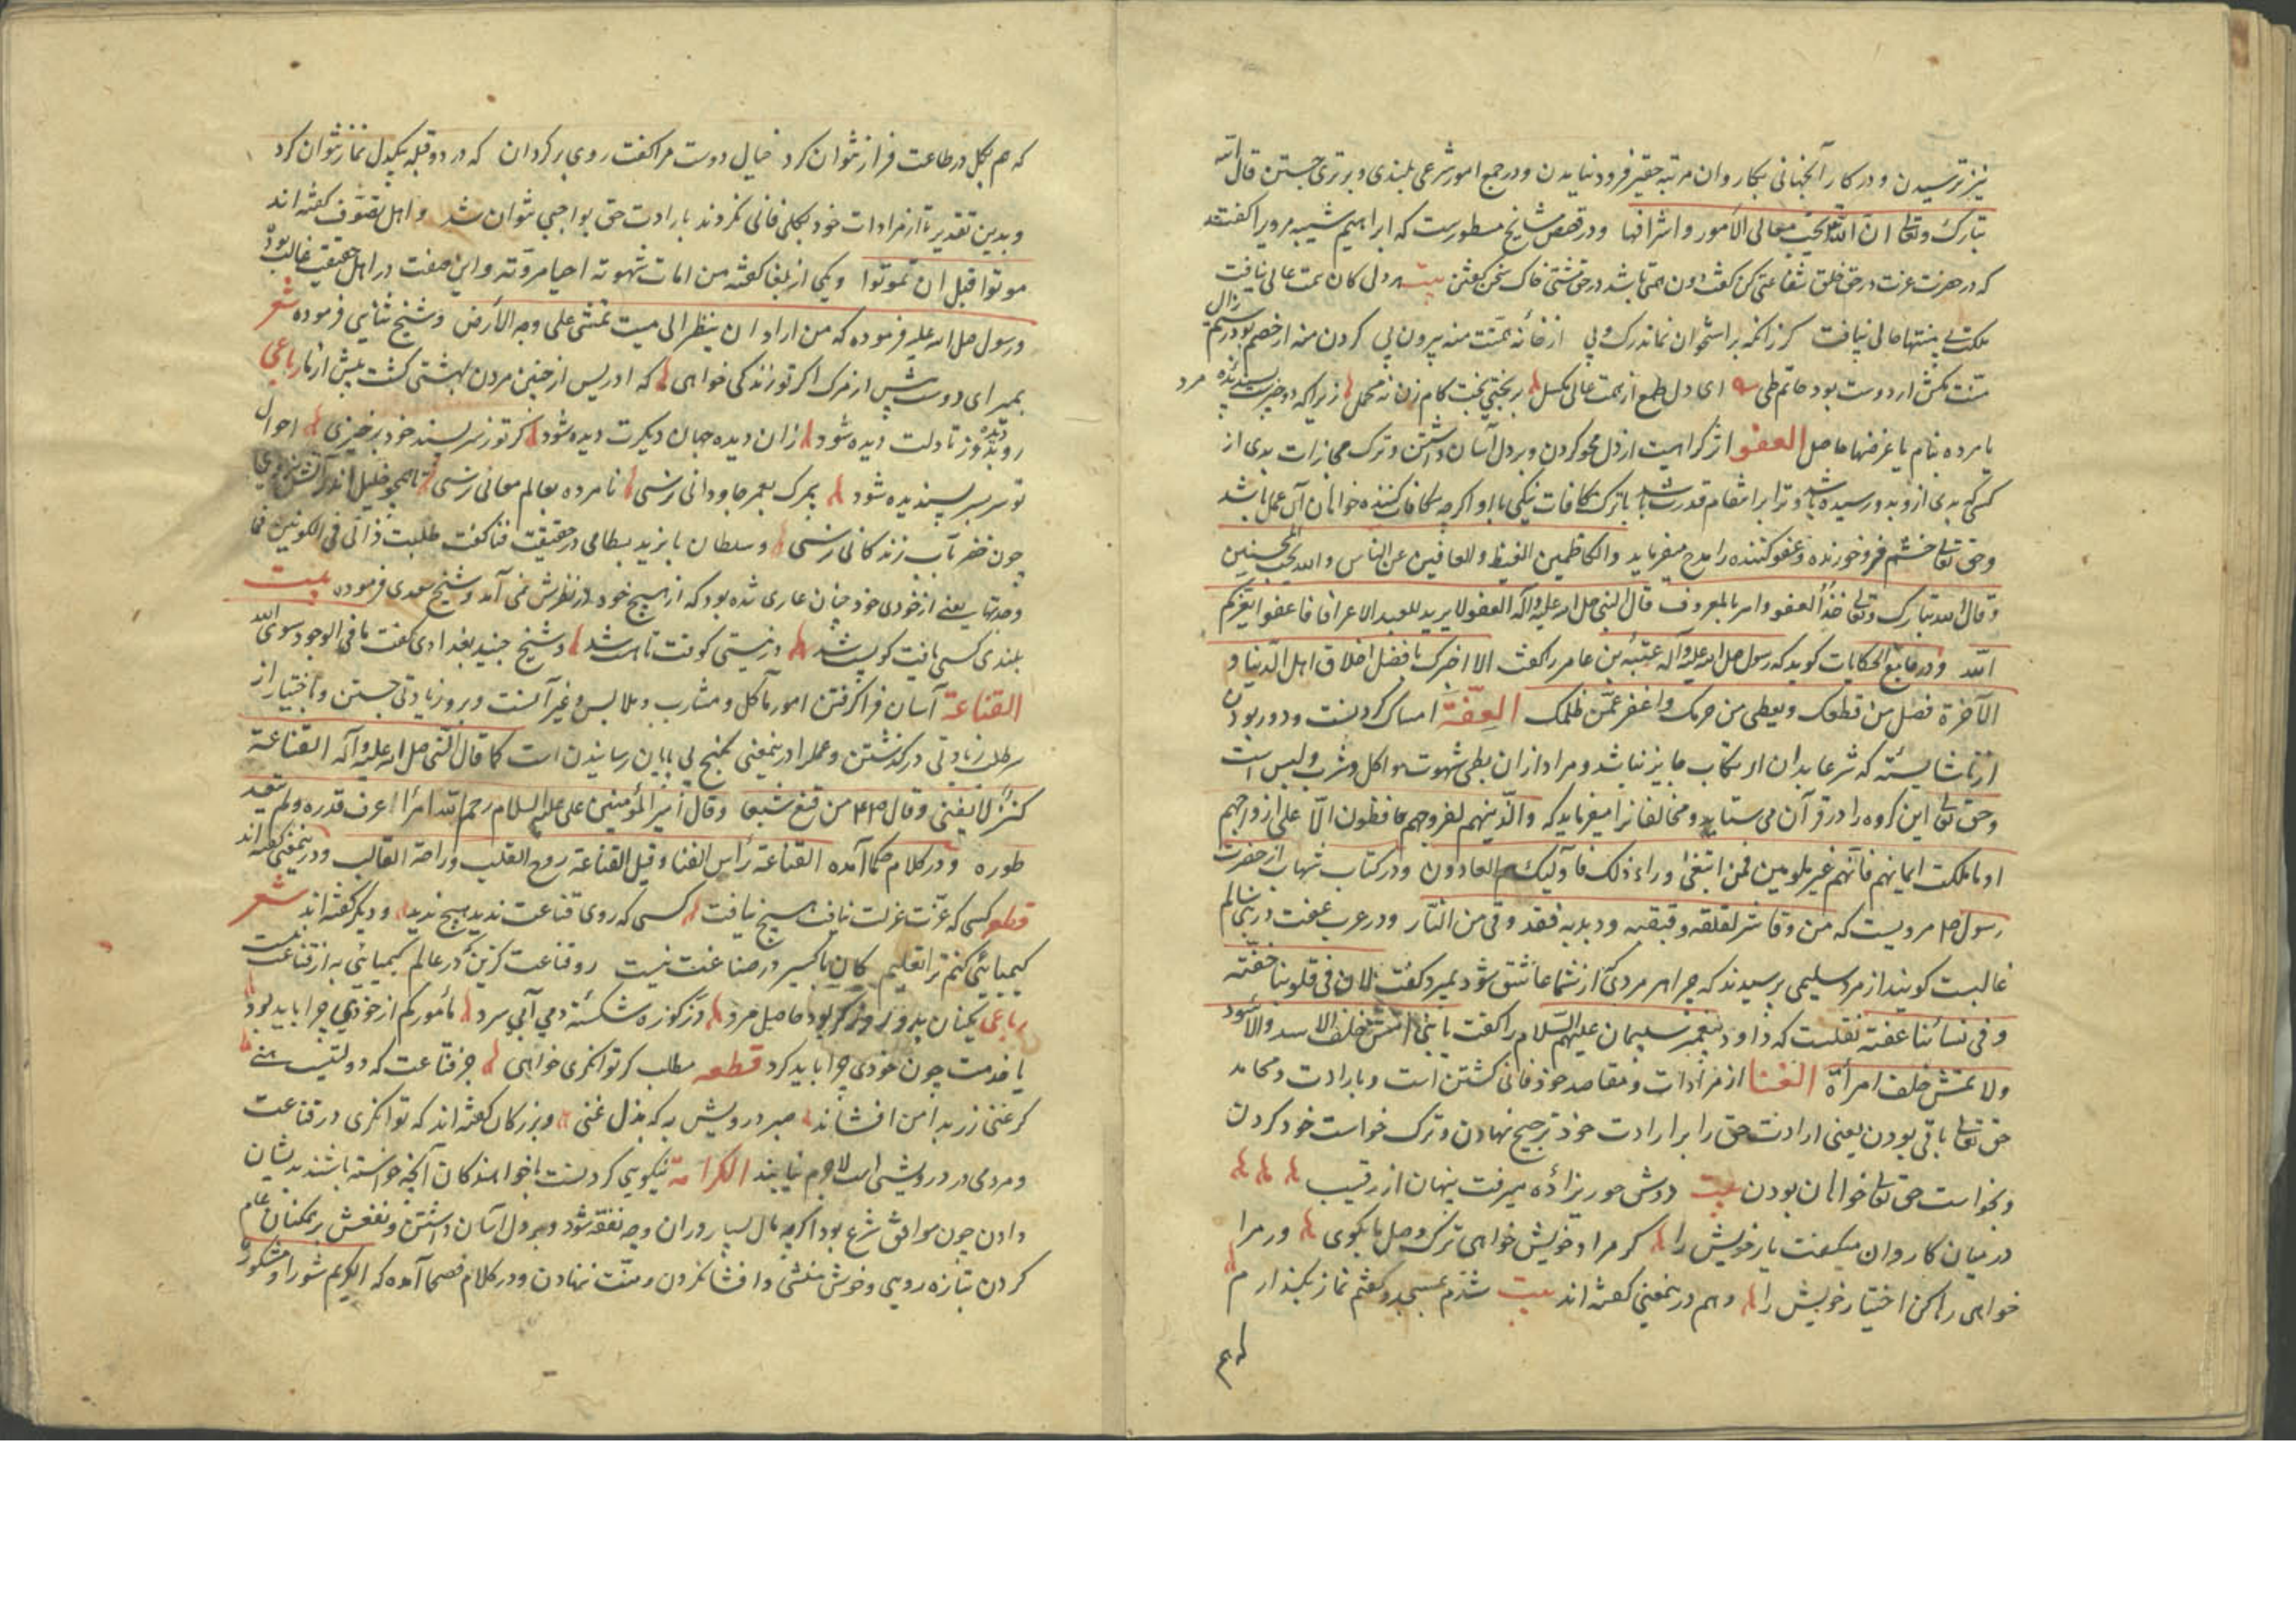 نیز ترسیدن و در کار آنجهانی بکار و ان مرتبه حقیر فرود نیایدن و در جمیع امور شرعی بلندی و برتری جستن قال الله
تبارک وتعالی ان الله یحب معالی الامور و اشرافها و در قصص مشایخ مسطورست که ابراهیم شیبه مرویرا گفتند
که در حضرت عزت در حق خلق شفاعتی کن گفت دون همتی باشد در حق مشتی خاک سخن گفتن بیت هر دلی کان همت عالی نیافت
ملکت بی منتها حالی نیافت کرز انکه بر استخوان نماند رک و پی از خانه همت منه بیرون پی کردن منه ار خصم بود رستم زال
منت مکش ار دوست بود حاتم طی ای دل طمع از همت عالی مکسل بختی کام زن نه محمل زیرا که دو چیزست پسندیده مرد
یا مرده بنام یا غرضها حاصل العفو از کراهیت از دل محو کردن و بر دل آسان داشتن و ترک مجازات بدی از
کسی که بدی ازو بدو رسیده باشد و ترا بر انتقام قدرت باشد با ترک مکافات نیکی با او اگر چه مکافات کننده خواهان آن عمل باشد
و حق تعالی خشم فرو خورنده و عفو کننده را مدح میفرماید والکاظمین الغیظ والعافین عن الناس والله یحب المحسنین
وقال الله تبارک وتعالی خذ العفو وامر بالمعروف قال النبی صل الله علیه وآله العفو لا یرید للعبد الا عزا فاعفوا یعزکم
الله و در جامع الحکایات کوید که رسول صل الله علیه وآله عتبه بن عامر را گفت الا اخبرک بافضل اخلاق اهل الدنیا و
الآخرة فصل من قطعک ویعطی من حرمک واغفر عمن ظلمک العفة امساک کردنست و دور بودن
از ناشایسته که شرعا بدان ارتکاب جایز نباشد و مراد ازان بطی شهوت و اکل و شرب و لبس است
و حق تعالی این کروه را در قرآن می ستاید و مخالفانرا میفرماید که والذینهم لفروجهم حافظون الا علی ازواجهم
او ما ملکت ایمانهم فانهم غیر ملومین فمن ابتغی وراء ذلک فاولئک هم العادون و در کتاب شهاب از حضرت
رسول مرویست که من وقا شر لقلقه و قبقبه و دبدبه فقد وقی من النار و در عرب عفت در بنی سالم
غالبست کویند از مرد سلیمی پرسیدند که چرا هر مردی که از شما عاشق شود بمیرد گفت لان فی قلوبنا خفته
و فی نسائنا عفته نقلست که داود پیغمبر سلیمان علیهم السلام را گفت یا بنی امش خلف الاسد والاسود
ولا تمش خلف امرأة الفنا از مرادات و مقاصد خود فانی کشتن است و با رادت و محامد
حق تعالی باقی بودن یعنی ارادت حق را بر ارادت خود ترجیح نهادن و ترک خواست خود کردن
و بخواست حق تعالی خواهان بودن بیت دوش حور یزاده میرفت پنهان از رقیب
در میان کاروان میکفت یار خویش را کر مراد خویش خواهی ترک وصل ما بکوی ور مرا
خواهی رها کن اختیار خویش را و هم در ینمعنی گفته اند بیت شدم بمسجد و گفتم نماز بگذارم
که هم
که هم بکل در طاعت فراز نتوان کرد خیال دوست مرا گفت روی بر کردان که در دو قبله بیکدل نماز نتوان کرد
و بدین تقدیر تا از مرادات خود بکلی فانی نکردند بارادت حق بواجبی نتوان شد و اهل تصوف گفته اند
موتوا قبل ان تموتوا و یکی از بلغا گفته من امات شهوته احیا مروته و این صفت در اهل حقیقت غالب بود
و رسول صل الله علیه فرموده که من اراد ان ینظر الی میت تمشی علی وجه الارض و شیخ ثنایی فرموده شعر
بمیر ای دوست پیش از مرک اکر تو زندکی خواهی که ادریس از چنین مردن بهشتی کشت پیش از ما رباعی
رو دیده بدوز تا دلت دیده شود زان دیده جهان دیگرت دیده شود کر تو ز سر پسند خود برخیزی احوال
تو سر بسر پسندیده شود بمرک بعمر جاودانی نرسی نا مرده بعالم معانی نرسی تا همچو خلیل اندر آتش نروی
چون خضر بآب زندکانی نرسی و سلطان بایزید بسطامی در حقیقت فنا گفت طلبت ذاتی فی الکونین فما
وجدتها یعنی از خودی خود چنان عاری شده بود که از هیچ خود در نظرش نمی آمد و شیخ سعدی فرموده بیت
بلندی کسی یافت کو پست شد در نیستی کوفت تا هست شد و شیخ جنید بغدادی گفت ما فی الوجود سوی الله
القناعة آسان فرا کرفتن امور مآکل و مشارب و ملابس و غیر آنست و برو زیادتی جستن و اختیار از
سر طلب زیادتی در کذشتن و عمل در ینمعنی بکنج بی پایان رسانیدن است کما قال النبی صل الله علیه وآله القناعة
کنز لا یفنی وقال من قنع شبعا وقال امیر المؤمنین علی علیه السلام رحم الله امرأ اعرف قدره ولم یتعد
طوره و در کلام حکما آمده القناعة رأس الغنا و قیل القناعة روح القلب وراحة القالب و در ینمعنی گفته اند
قطعه کسی که عزت عزلت نیافت هیچ نیافت کسی که روی قناعت ندید هیچ ندید و دیگر گفته اند شعر
کیمیائی کنم ترا تعلیم کان باکسیر در صناعت نیست رو قناعت کزین که در عالم کیمیایی به از قناعت نیست
رباعی یکنان بدو روز اگر بود حاصل مرد وز کوزه شکسته دمی آبی سرد مأمور کم از خودی چرا باید بود
یا خدمت چون خودی چرا باید کرد قطعه مطلب کر توانکری خواهی جز قناعت که دولتیست هنی
کر غنی زر بدامن افشاند صبر درویش به که بذل غنی و بزرکان گفته اند که توانکری در قناعت
و مردمی در درویشی است لاجرم نیابند الکرامة نیکویی کردنست با خواهندکان آنچه خواسته باشند بدیشان
دادن چون موافق شرع بود اکر چه مال بسیار دران وجه نفقه شود و بر دل آسان داشتن و نفعش بر همکنان عام
کردن بتازه رویی و خوش منشی و افشا نکردن و منت ننهادن و در کلام فصحا آمده که الکریم شورا و مشکورا